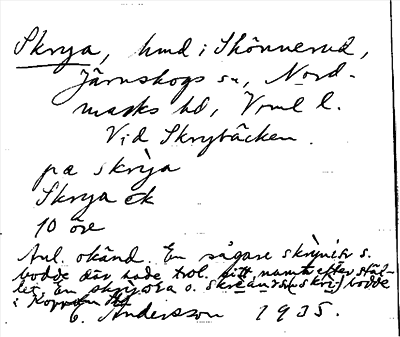 Skrya, hmd i Skönnerud,
Järnskogs sn, Nord-
marks hd, Vrml l.
Vid Skrybäcken.
pa skrỳa
Skrya ek
10 öre
Anl. okänd. En sågare s.
bodde där hade trol. sitt namn efter stäl-
let. En o. bodde
i Koppom
C. Andersson 1935.